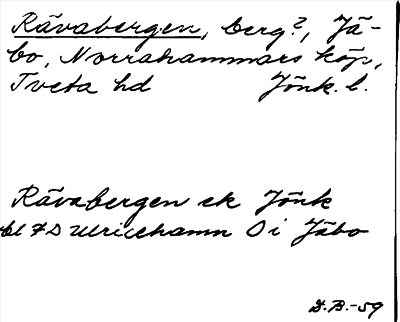 Rävabergen, berg?, Jä-
bo, Norrahammars köp,
Tveta hd Jönk. l.
Rävabergen ek Jönk
bl 7 D Ulricehamn O i Jäbo
D.B.-59